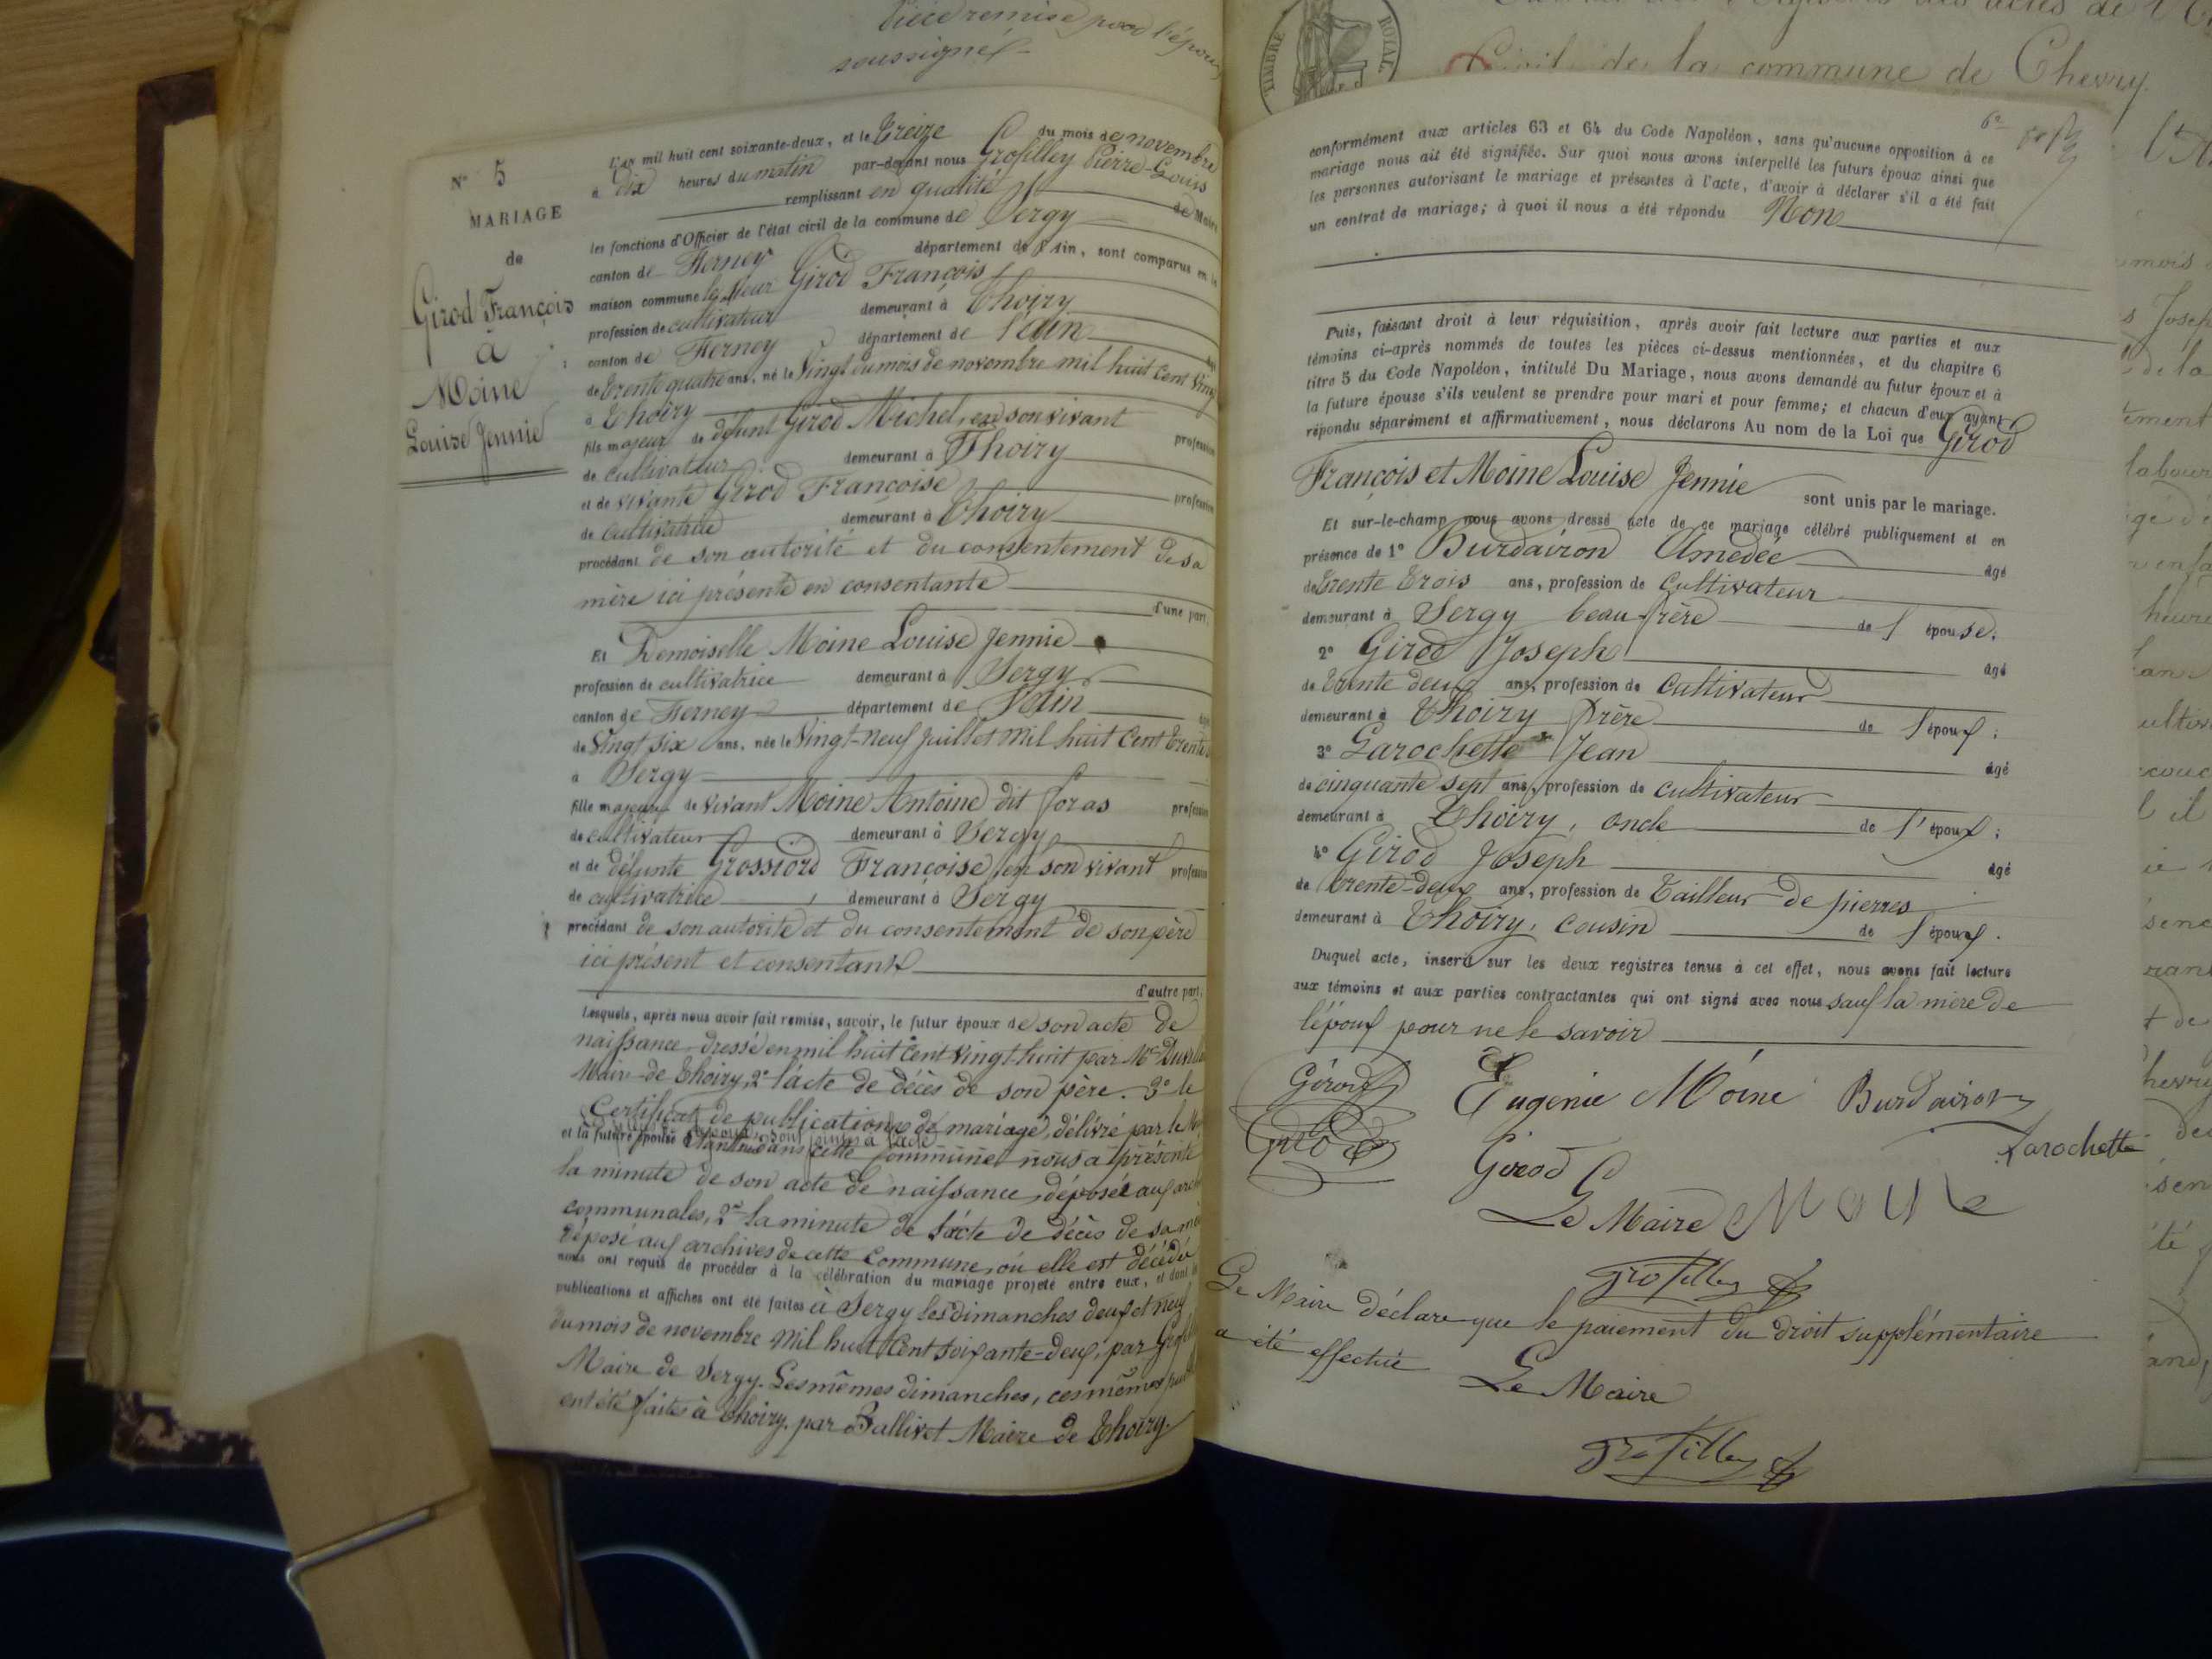 soussigné
N° 5
MARIAGE
de
Girod François
à
Moine
Louise Jennie
L'an mil huit cent soixante-deux, et le treize du mois de novembre
à dix heures du matin par-devant nous Grosfilley Pierre-Louis
remplissant en qualité de Maire
les fonctions d'Officier de l'état civil de la commune de Sergy
canton de Ferney département de l'Ain, sont comparus en la
maison commune le sieur Girod François
profession de cultivateur demeurant à Thoiry
canton de Ferney département de l'Ain âgé
de trente quatre ans, né le Vingt du mois de novembre mil huit cent vingt
à Thoiry
fils majeur de défunt Girod Michel, en son vivant profession
de cultivateur demeurant à Thoiry
et de vivante Girod Françoise profession
de cultivatrice demeurant à Thoiry
procédant de son autorité et du consentement de sa
mère ici présente en consentante
d'une part;
Et Demoiselle Moine Louise Jennie
profession de cultivatrice demeurant à Sergy
canton de Ferney département de l'Ain âgé
de Vingt six ans, née le Vingt-neuf juillet mil huit cent trente
à Sergy
fille majeure de vivant Moine Antoine dit foras profession
de cultivateur demeurant à Sergy
et de défunte Grossiord Françoise en son vivant profession
de cultivatrice demeurant à Sergy
procédant de son autorité et du consentement de son père
ici présent et consentant
d'autre part;
Lesquels, après nous avoir fait remise, savoir, le futur époux de son acte de
naissance dressé en mil huit cent vingt-huit par Mr
Maire de Thoiry, 2° l'acte de décès de son père. 3° le
Certificat de publications de mariage, délivré par le
et la future épouse dans cette commune nous a présenté
la minute de son acte de naissance, déposée aux
communales, 2° la minute de l'acte de décès de sa
déposé aux archives de cette commune, où elle est décédée
nous ont requis de procéder à la célébration du mariage projeté entre eux, et dont les
publications et affiches ont été faites à Sergy les dimanches deux et neuf
du mois de novembre mil huit cent soixante-deux, par
Maire de Sergy. Les mêmes dimanches, ces mêmes
ont été faites à Thoiry, par Ballivet Maire de Thoiry.
TIMBRE ROYAL
de la commune de Chevry.
conformément aux articles 63 et 64 du Code Napoléon, sans qu'aucune opposition à ce
mariage nous ait été signifiée. Sur quoi nous avons interpellé les futurs époux ainsi que
les personnes autorisant le mariage et présentes à l'acte, d'avoir à déclarer s'il a été fait
un contrat de mariage; à quoi il nous a été répondu Non
Puis, faisant droit à leur réquisition, après avoir fait lecture aux parties et aux
témoins ci-après nommés de toutes les pièces ci-dessus mentionnées, et du chapitre 6
titre 5 du Code Napoléon, intitulé Du Mariage, nous avons demandé au futur époux et à
la future épouse s'ils veulent se prendre pour mari et pour femme; et chacun d'eux ayant
répondu séparément et affirmativement, nous déclarons Au nom de la Loi que Girod
François et Moine Louise Jennie sont unis par le mariage.
Et sur-le-champ nous avons dressé acte de ce mariage célébré publiquement et en
présence de 1° Burdairon Amédée âgé
de trente trois ans, profession de cultivateur
demeurant à Sergy beau-frère de l'épouse;
2° Girod Joseph âgé
de trente deux ans, profession de cultivateur
demeurant à Thoiry frère de l'époux;
3° Larochette Jean âgé
de cinquante sept ans, profession de cultivateur
demeurant à Thoiry, oncle de l'époux;
4° Girod Joseph âgé
de trente-deux ans, profession de tailleur de pierres
demeurant à Thoiry, cousin de l'époux.
Duquel acte, inseré sur les deux registres tenus à cet effet, nous avons fait lecture
aux témoins et aux parties contractantes qui ont signé avec nous sauf la mère de
l'époux pour ne le savoir
Girod Eugenie Moine Burdairon
Girod Girod Larochette
Le Maire Moine
Grosfilley
Le Maire déclare que le paiement du droit supplémentaire
a été effectué Le Maire
Grosfilley